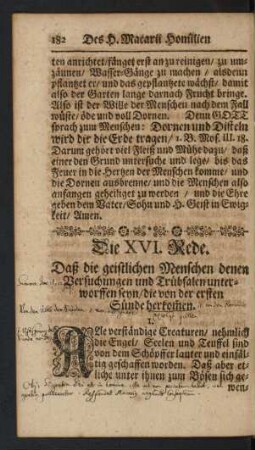 182 Des H. Macarii Homilien
ten anrichtet/fänget erst an zu reinigen/ zu um-
zäunen/ Wasser-Gänge zu machen / alsdenn
pflantzet er/ und das gepflantzete wächst/ damit
also der Garten lange darnach Frucht bringe.
Also ist der Wille der Menschen nach dem Fall
wüste/ öde und voll Dornen. Denn GOTT
sprach zum Menschen: Dornen und Disteln
wird dir die Erde tragen/ 1. B. Mos. III. 18.
Darum gehöret viel Fleiß und Mühe dazu/ daß
einer den Grund untersuche und lege/ biß das
Feuer in die Hertzen der Menschen komme/ und
die Dornen ausbrenne/ und die Menschen also
anfangen geheiliget zu werden / und die Ehre
geben dem Vater/ Sohn und H. Geist in Ewig-
keit/ Amen.
Die XVI. Rede.
Daß die geistlichen Menschen denen
Versuchungen und Trübsalen unter-
worffen seyn/ die von der ersten
Sünde herkommen.
1.
Alle verständige Creaturen/ nehmlich
die Engel/ Seelen und Teuffel sind
von dem Schöpffer lauter und einfäl-
tig geschaffen worden. Daß aber et-
liche unter ihnen zum Bösen sich ge-
wen-